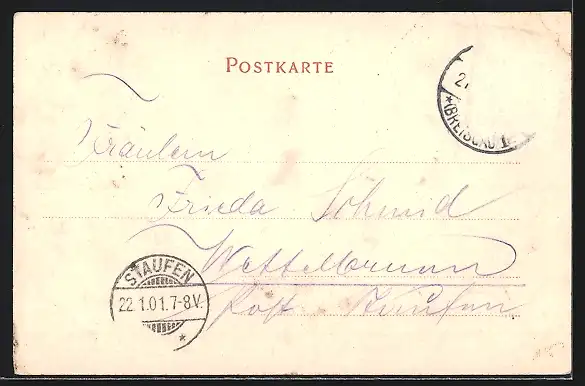 POSTKARTE
2.
*(BREISGAU) 1
Fräulein
Frieda Schmid
Wettelbrunn
Post Staufen
STAUFEN
22.1.01.7-8V.
*